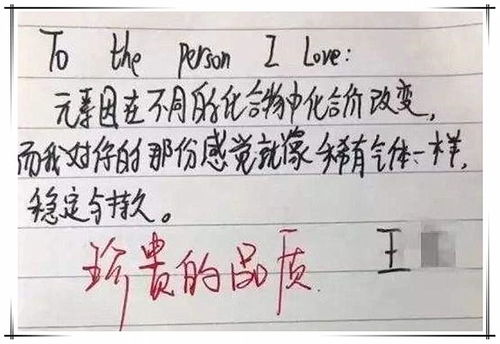 To the person I Love:
元素因在不同的化合物中化合价改变,
而我对你的那份感觉就像稀有气体一样,
稳定与持久。
珍贵的品质
王